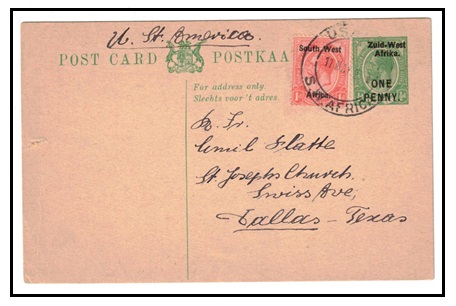 U. St. America.
POST CARD POSTKAA
South West
Africa.
Zuid-West
Afrika.
ONE
PENNY
S.W. AFRICA
For address only.
Slechts voor 't adres.
R. Fr.
Emil Flatte
St. Josephs Church
Swiss Ave,
Dallas - Texas